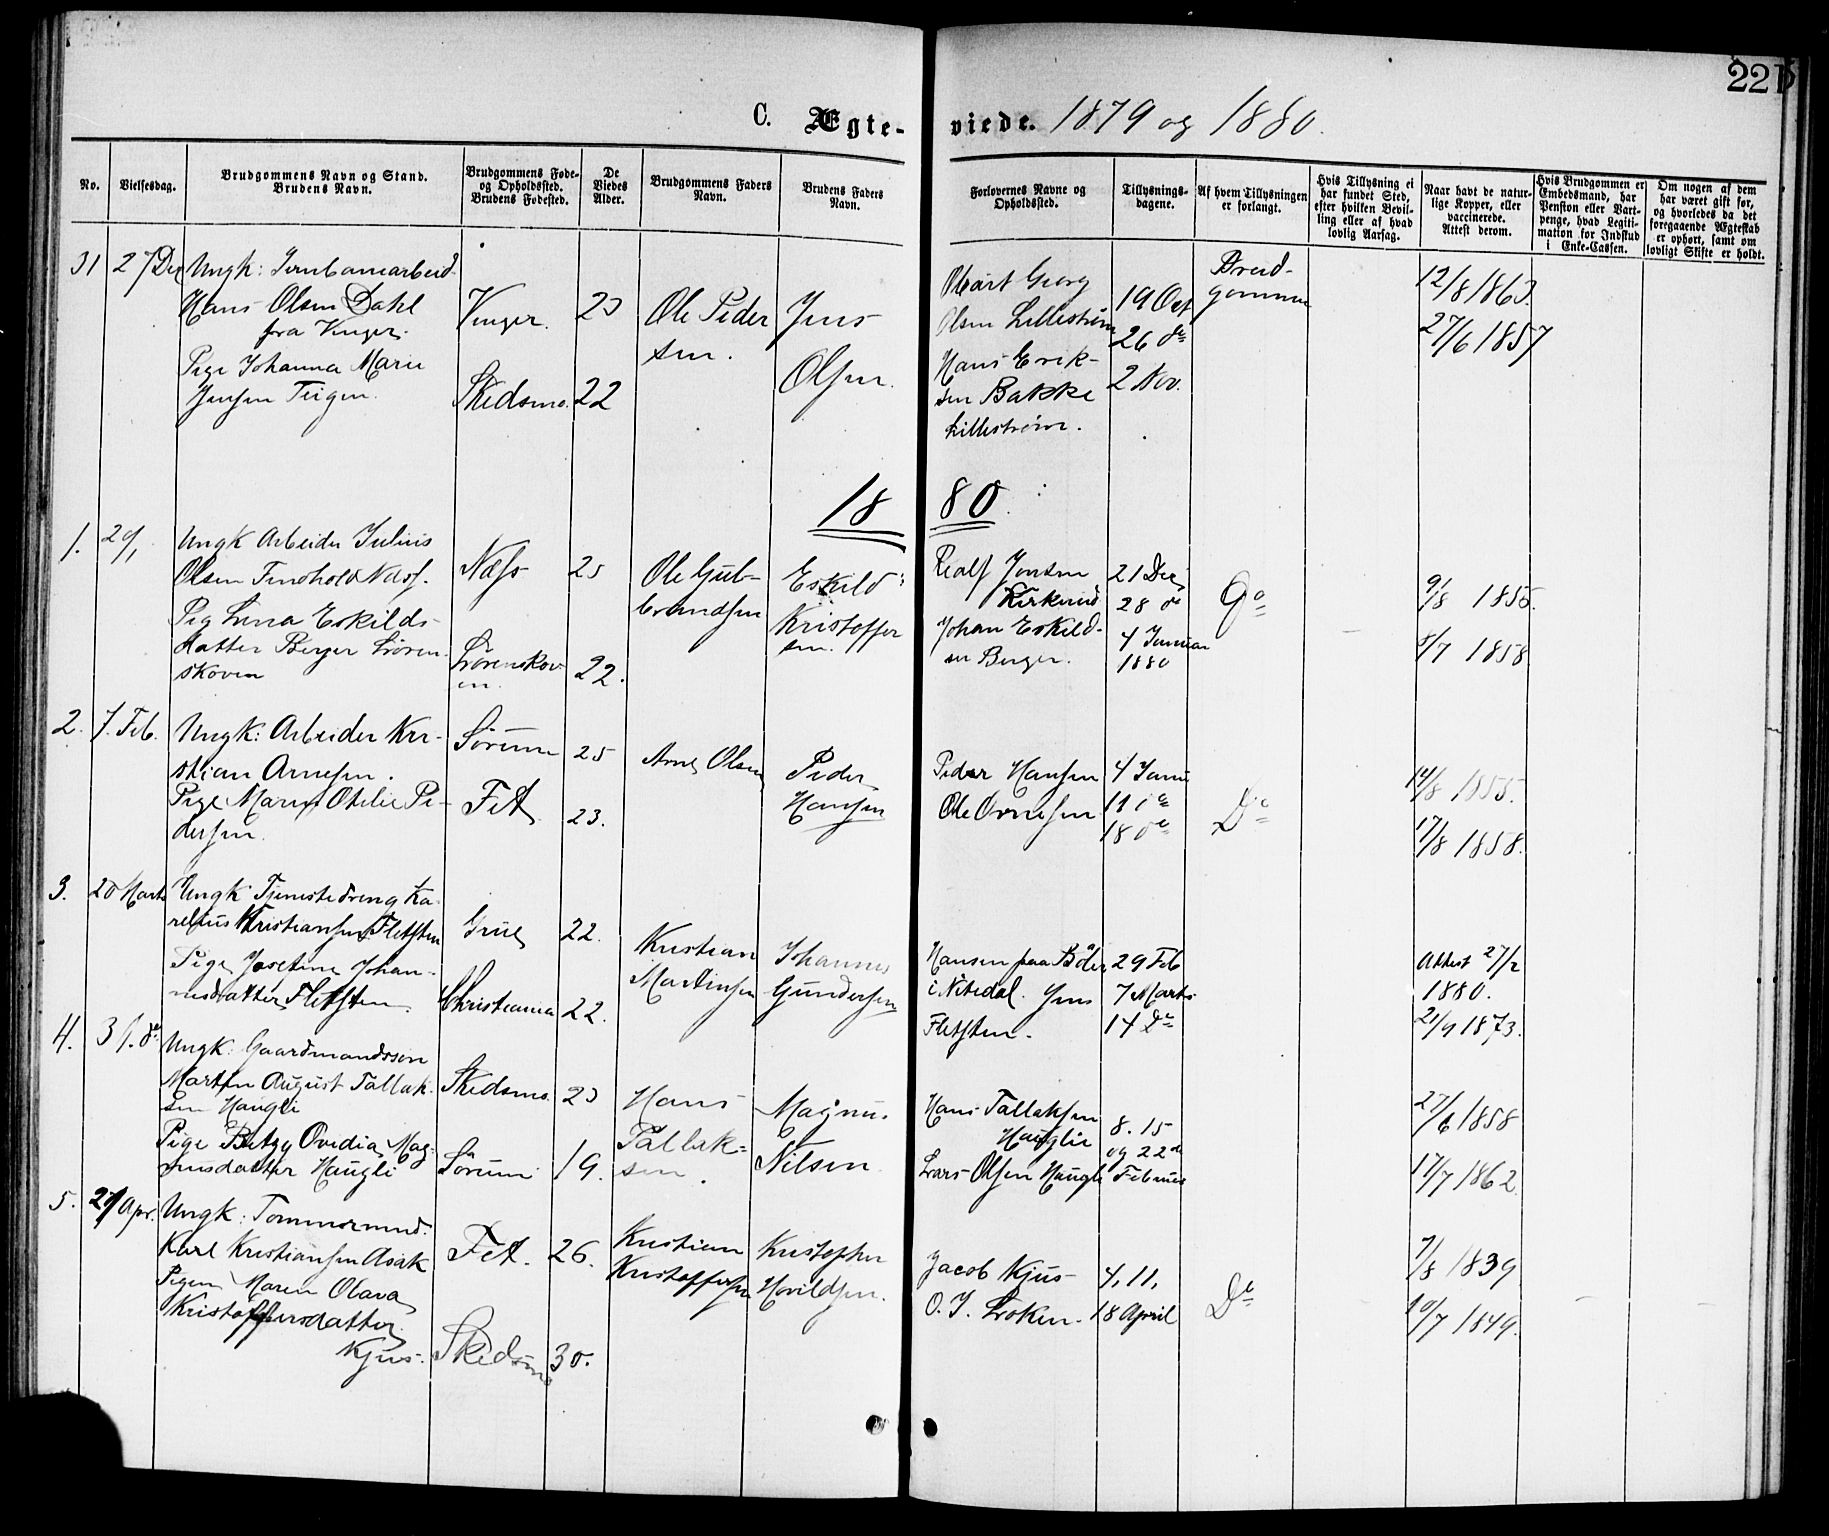 221
C. Ægte-
viede. 1879 og 1880.
No.
Vielsesdag.
Brudgommens Navn og Stand.
Brudens Navn.
Brudgommens Føde-
og Opholdssted.
Brudens Fødested.
De
Viedes
Alder.
Brudgommens Faders
Navn.
Brudens Faders
Navn.
Forlovernes Navne og
Opholdssted.
Tillysnings-
dagene.
Af hvem Tillysningen
er forlangt.
Hvis Tillysning ei
har fundet Sted,
efter hvilken Bevil-
ling eller af hvad
lovlig Aarsag.
Naar havt de natur-
lige Kopper, eller
vaccinerede.
Attest derom.
Hvis Brudgommen er
Embedsmand, har
Pension eller Vart-
penge, hvad Legiti-
mation for Indskud
i Enke-Cassen.
Om nogen af dem
har været gift før,
og hvorledes da det
foregaaende Ægteskab
er ophørt, samt om
lovligt Skifte er holdt.
31
27 Dec
Ungk: Jernbanearbeid.
Hans Olsen Dahl
fra Vinger.
Pige Johanna Marie
Jensen Teigen.
Vinger.
Skedsmo.
23
22
Ole Peder
sen.
Jens
Olsen.
Georg
Olsen Lillestrøm
Hans Erik-
sen Bakke
Lillestrøm.
19 Oct
26 de
2 Nov.
Brud-
gommen
12/8 1863.
27/6 1857
1880
1.
Ungk Arbeider Julius
Olsen Næs.
Pig Lina Eskilds-
datter Berger Løren
skoven
Næs
Lørenskov
en.
25
22.
Ole Gub-
brandsen
Eskild
Kristoffer
sen.
Jonsen
Johan Eskild-
sen Berger.
21 Dec
28 de
4 Januar
1880
9/8 1855.
8/7 1858
2.
7. Feb.
Ungk: Arbeider Kri-
stian Arnesen.
Pige Maren Otelie Pe-
dersen.
Sørum
Fet
25
23.
Arne Olsen
Peder
Hansen
Peder Hansen
Ole Arnesen
4 Janu
11 de
18 de
De
14/8 1855.
17/8 1858.
3.
20 Marts
Ungk Tjenestedreng Ka-
relius Kristiansen Fletsten
Pige Josefine Johan-
nesdatter Fletsten
Grue
Christiania
22.
22.
Kristian
Martinsen
Johannes
Gundersen
Hansen paa Böler
i Nitedal. Jens
Fletsten.
29 Feb
7 Marts
14 De
Attest 27/2
1880.
21/9 1873.
4.
Ungk: Gaardmandssøn
Martin August Tallak-
sen Haugli
Pige Betzy Ovedia Mag-
nusdatter Haugli
Skedsmo.
Sørum
23
19.
Hans
Tallak-
sen.
Magnus
Nilsen
Hans Tallaksen
Hauglie
Lars Olsen Haugli
8. 15
og 22de
Februar
27/6 1858
17/7 1862.
5.
Apr.
Ungk: Tømmermand.
Karl Kristiansen Asak
Pigen Maren Olava
Kristoffersdatter
Kjus.
Fet.
Skedsmo
26.
30.
Kristian
Kristoffersen
Kristoffer
Hovildsen.
Jacob Kjus
O. J. Løken.
4, 11,
18 April
De
7/8 1839
10/7 1849.